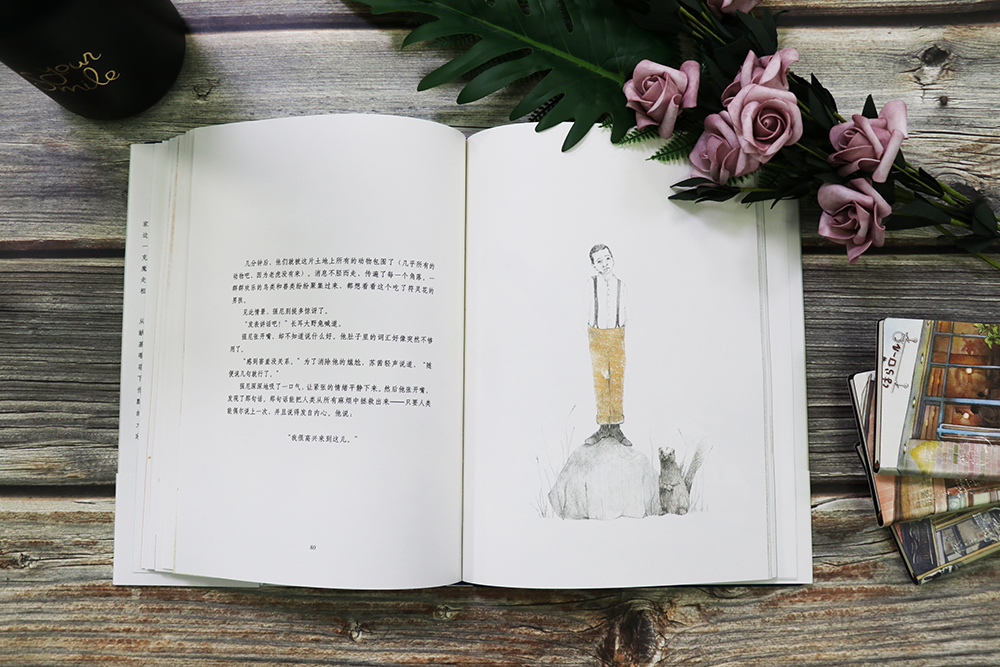 your
smile
几分钟后，他们就被这片土地上所有的动物包围了（几乎所有的
动物吧，因为老虎没有来）。消息不胫而走，传遍了每一个角落。一
群群欢乐的鸟类和兽类纷纷聚集过来，都想看看这个吃了符灵花的
男孩。
见此情景，强尼别提多惊讶了。
“发表讲话吧！”长耳大野兔喊道。
强尼张开嘴，却不知道说什么好。他肚子里的词汇好像突然不够
用了。
“感到害羞没关系。”为了消除他的尴尬，苏茜轻声说道，“随
便说几句就行了。”
强尼深深地吸了一口气，让紧张的情绪平静下来。然后他张开嘴，
发现了那句话。那句话能把人类从所有麻烦中拯救出来——只要人类
能偶尔说上一次，并且说得发自内心。他说：
“我很高兴来到这儿。”
80
ばらロール